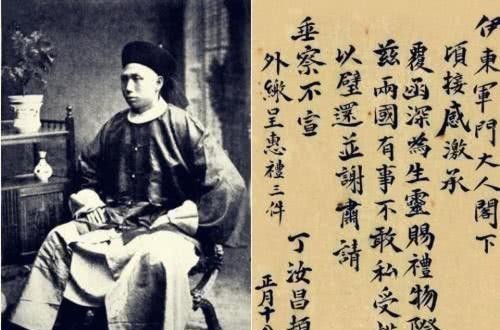 伊東軍門大人閣下
頃接感激承
覆函深為生靈賜禮物際
茲兩國有事不敢私受
以璧還並謝肅請
垂察不宣
外繳呈惠禮三件
丁汝昌頓
正月十八